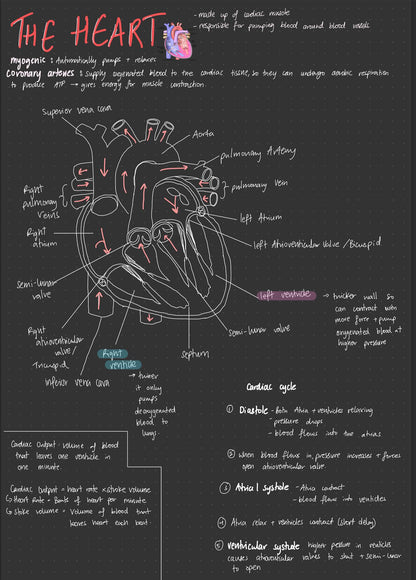 THE HEART
- made up of cardiac muscle
- responsible for pumping blood around blood vessels
myogenic : Automatically pumps + relaxes
Coronary arteries : supply oxygenated blood to the cardiac tissue, so they can undergo aerobic respiration
to produce ATP → gives energy for muscle contraction.
Superior vena cava
Aorta
pulmonary Artery
pulmonary vein
Right
pulmonary
veins
left Atrium
Right
atrium
left Atrioventricular Valve / Bicuspid
Semi-lunar
valve
left ventricle
→ thicker wall so
can contract with
more force + pump
oxygenated blood at
higher pressure
semi-lunar valve
Right
atrioventricular
valve /
Tricuspid
inferior vena cava
Right
ventricle
septum
→ thinner
it only
pumps
deoxygenated
blood to
lungs.
Cardiac cycle
① Diastole - Both Atria + ventricles relaxing
- pressure drops
- blood flows into the atrias
② When blood flows in, pressure increases + forces
open atrioventricular valve.
③ Atrial systole - Atria contract
- blood flows into ventricles
④ Atria relax + ventricles contract (short delay)
⑤ ventricular systole higher pressure in ventricles
causes atrioventricular valves to shut + semi-lunar
to open
Cardiac Output - volume of blood
that leaves one ventricle in
one minute.
Cardiac Output = heart rate × stroke volume
Heart Rate = Beats of heart per minute
Stroke volume = Volume of blood that
leaves heart each beat.